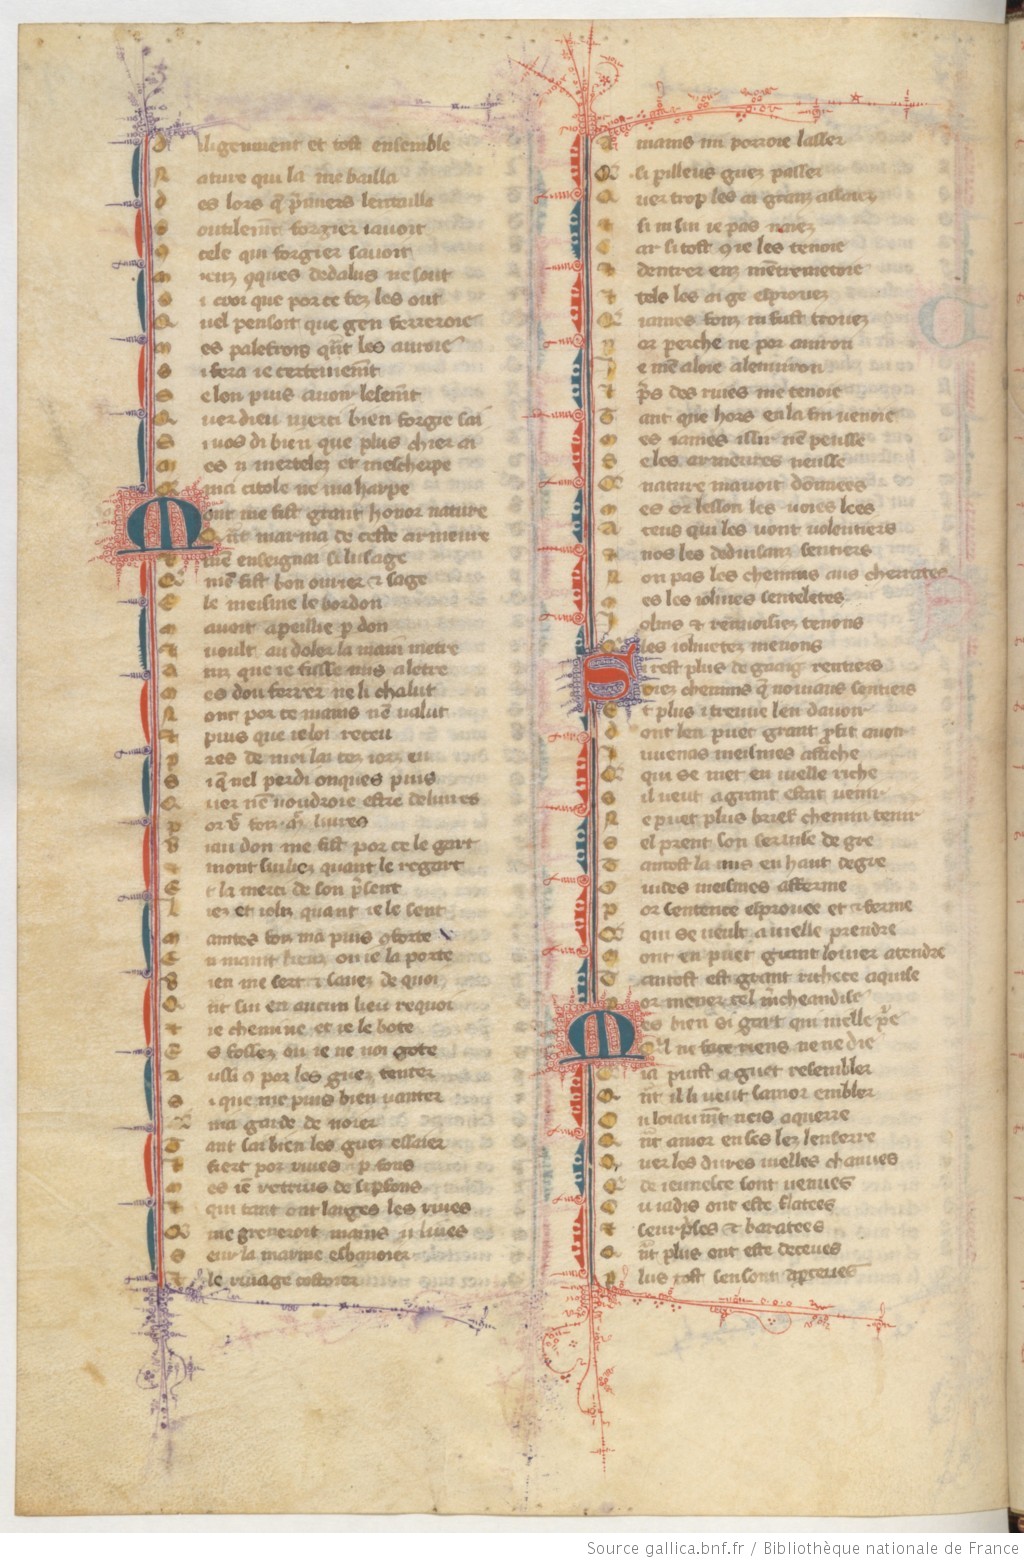 D iligenment et tost ensemble
N ature qui la me bailla
d es lors q̃ p̃miers lentailla
C outilem̃t forgier savoit
C cele qui forgier savoit
M ieuz 9ques dedalus ne sout
S i croi que por ce fez les out
Q uel pensoit que gen ferreroie
M es palefrois q̃nt les auroie
S i fera ie certenem̃t
S e ion puis auoir lesem̃t
Q uer dieu merci bien forgie lai
S i uos di bien que plus chier ai
M es ii mertelez et mescherpe
Q ma citole ne ma harpe
M out me fist grant honor nature
Q̃nt mar ma de ceste armeure
mẽ enseignai si lusage
Q mẽ fist bon ouvrier et sage
E le meisme le bordon
M auoit apeillie p don
T voult au doler la main metre
A inz que ie fusse mis a letre
M es dou ferrer ne li chalut
N ont por ce mains nẽ valut
T puis que ie loi receu
P res de moi lai toz iorz eu
S i q̃ nel perdi onques puis
Q uer nẽ voudroie estre deliures
P or v̊ foiz .c. liures
B iau don me fist por ce le gart
m mont sui liez quant le regart
E t la merci de son p̃sent
L iez et iolis quant ie le sent
M aintes foiz ma puis 9forte
E n maint lieuz ou ie la porte
B ien me sert et sauez de quoi
Q̃nt sui en aucun lieu requoi
E ie chemine et ie le bote
E s fossez ou ie ne uoi gote
A ussi 9 por les guez tenter
S i que me puis bien vanter
Q ma garde de noier
T ant sai bien les guez essaier
E fiert por rives p fons
M es iẽ retruis de si p̃fons
E qui tant ont larges les rives
Q me greueroit mains ii liues
S eur la marine esbanoier
E le rivage costoier
A mains mi porroie lasser
Q si pilleus guez passer
Q uer trop les ai granz assaiez
si mi sui ie pas naiez
C ar si tost 9 ie les tenoie
T dentrer enz mẽtremetoie
T tels les ai ge esprouez
Q iames fonz ni fust trouez
P or perche ne por auiron
J e mẽ aloie alenuiron
T p̃s des rives me tenoie
T ant que hors en la fin venoie
M es iames issir nẽ peusse
S e les armeures neusse
Q nature mauoit dõnees
M es or lesson les uoies lees
A ceus qui les uont volentiers
T nos les deduisanz sentiers
N on pas les chemins aus cherrates
M es les iolines senteletes
J olins et renuoisiez tenons
Q les ioliuetez menons
S i rest plus de gaaig rentiers
uiez chemins q̃ nouuiaus sentiers
E t plus i treuue len dauoir
D ont len puet grant p̃fit auoir
J uuenas meismes affiche
Q qui se met en uielle riche
S il veut a grant estat venir
N e puet plus brief chemin tenir
S el prent son seruise de gre
T antost la mis en haut degre
O uides meismes afferme
P or sentence esprouee et ferme
Q qui se ueult a uielle prendre
M ont en puet grant loiuer atendre
T antost est grant richece aquise
P or mener tel m̃cheandise
M es bien si gart qui uielle p̃e
Q̃l ne face riens ne ne die
J a puist a guet resembler
Q̃nt il li veut samor embler
O u loiaum̃t neis aquerre
Q̃nt amor en ses lez lenserre
Q uer les dures uielles chanues
Q de ieunesce sont uenues
O u iadis ont este flatees
T seurp̃ses et baratees
Q̃nt plus ont este deceues
P lus tost sen sont ap̃ceues
Source gallica.bnf.fr / Bibliothèque nationale de France